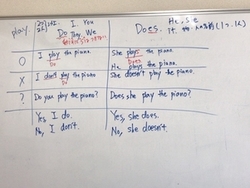 play.
I. You
Do They. We
Does. He, she
It.
O
I play the piano.
Do
She plays the piano.
Does
He plays the piano.
X
I don't play the piano
Do
She doesn't play the piano.
?
Do you play the piano?
Does she play the piano?
Yes, I do.
No, I don't.
Yes, she does.
No, she doesn't.